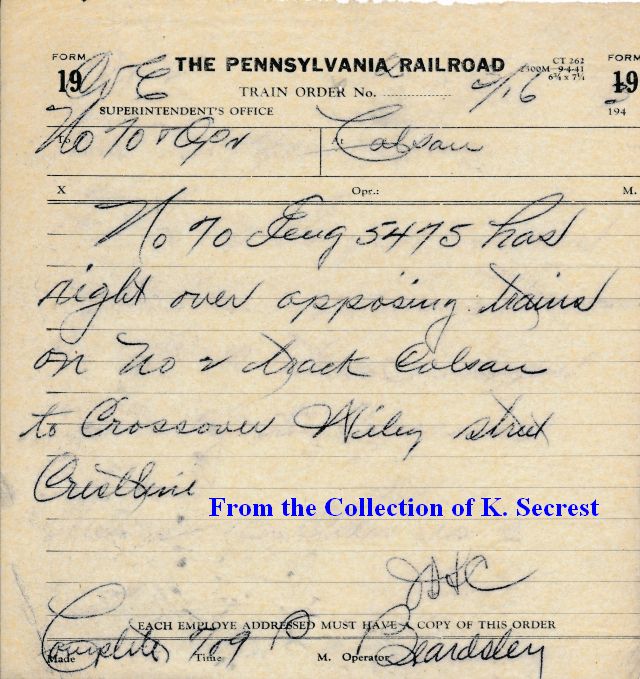 FORM 19 THE PENNSYLVANIA RAILROAD CT 262 FORM 19
TRAIN ORDER No. 2 2500M 9-4-41
6¾ x 7¼
2/16 194
SUPERINTENDENT'S OFFICE
To No 70 & Opr At Colsan
X Opr.: M.
No 70 Eng 5475 has
right over opposing trains
on No 2 track Colsan
to Crossover Wiley street
Crestline
From the Collection of K. Secrest
JHC
EACH EMPLOYE ADDRESSED MUST HAVE A COPY OF THIS ORDER
Made Complete Time 209 P M. Operator Beardsley